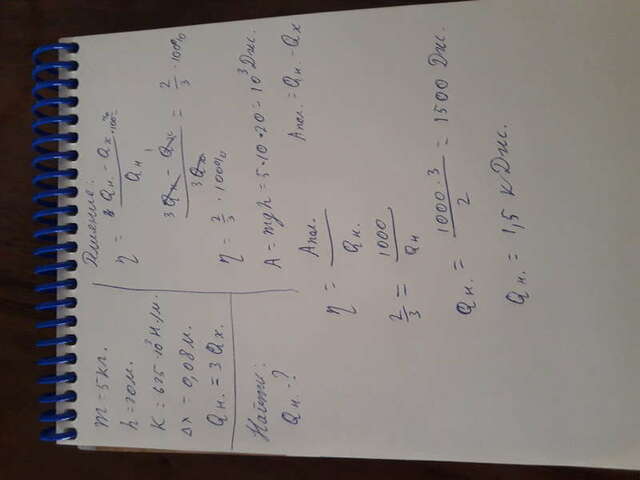 m = 5 кг.
h = 20 м.
K = 625 · 10³ Н/м.
Δx = 0,08 м.
Qн. = 3 Qх.
Найти:
Qн. - ?
Решение:
η = Qн. - Qх / Qн · 100%
3Qх - Qх / 3Qх = 2/3 · 100%
η = 2/3 · 100%
A = mgh = 5 · 10 · 20 = 10³ Дж.
Aпол. = Qн. - Qх
η = Aпол. / Qн.
2/3 = 1000 / Qн
Qн. = 1000 · 3 / 2 = 1500 Дж.
Qн. = 1,5 кДж.